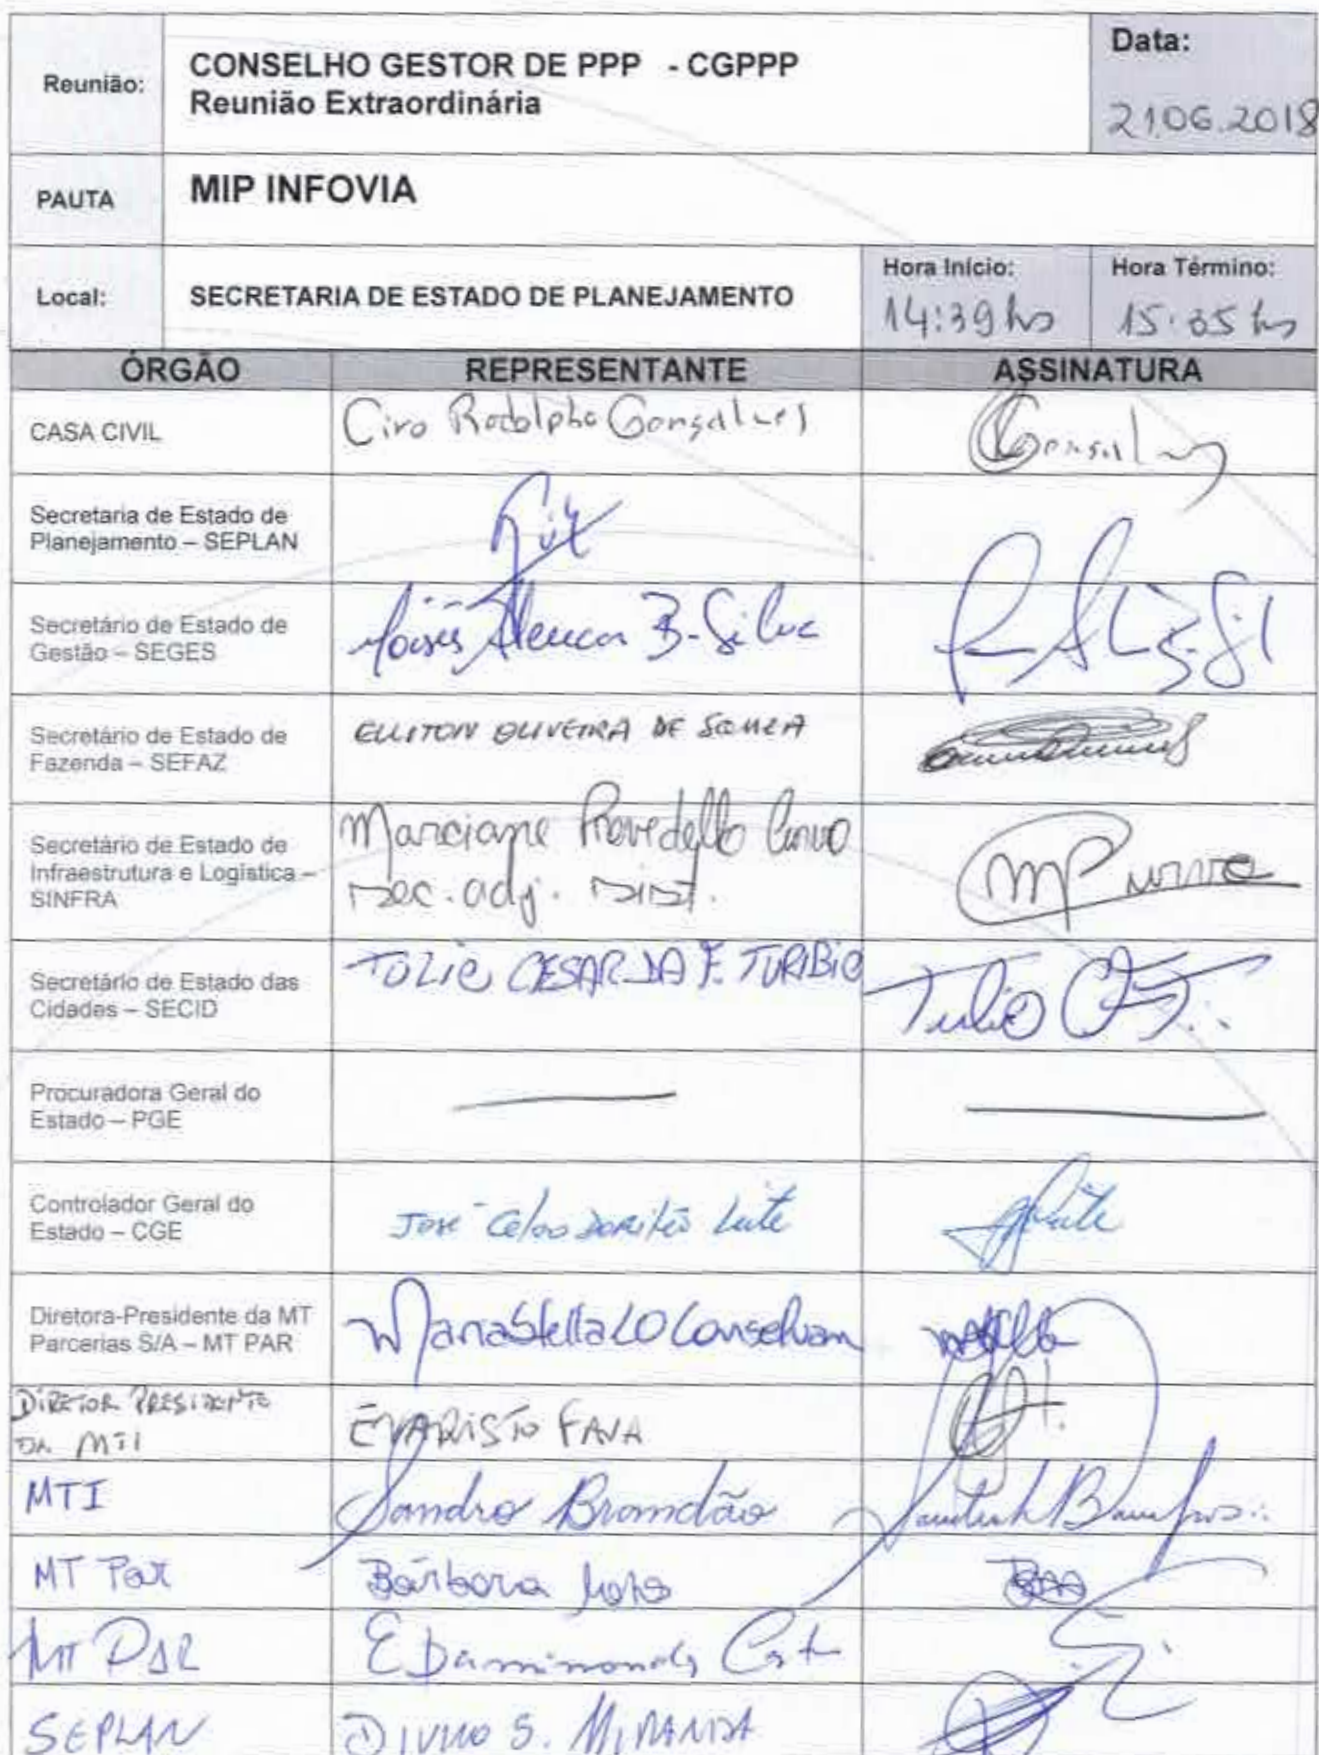 Reunião:
CONSELHO GESTOR DE PPP - CGPPP
Reunião Extraordinária
Data:
21.06.2018
PAUTA
MIP INFOVIA
Local:
SECRETARIA DE ESTADO DE PLANEJAMENTO
Hora Início:
14:39 hs
Hora Término:
15:35 hs
ÓRGÃO REPRESENTANTE ASSINATURA
CASA CIVIL
Ciro Rodolpho Gonçalves
Secretaria de Estado de
Planejamento – SEPLAN
Secretário de Estado de
Gestão – SEGES
Moisés Alencar B. Silva
Secretário de Estado de
Fazenda – SEFAZ
ELLITON OLIVEIRA DE SOUZA
Secretário de Estado de
Infraestrutura e Logística –
SINFRA
Marciane Prevedello Curvo
Sec. adj.
Secretário de Estado das
Cidades – SECID
TULIO CESAR DA F. TURIBIO
Tulio
Procuradora Geral do
Estado – PGE
Controlador Geral do
Estado – CGE
José Celso Dorilêo Leite
Diretora-Presidente da MT
Parcerias S/A – MT PAR
Maria Stella LO Conselvan
DIRETOR PRESIDENTE
DA MTI
EVARISTO FAVA
MTI
Sandro Brandão
MT Par
Bárbara
MT PAR
Epaminondas
SEPLAN
DIVINO S. MIRANDA